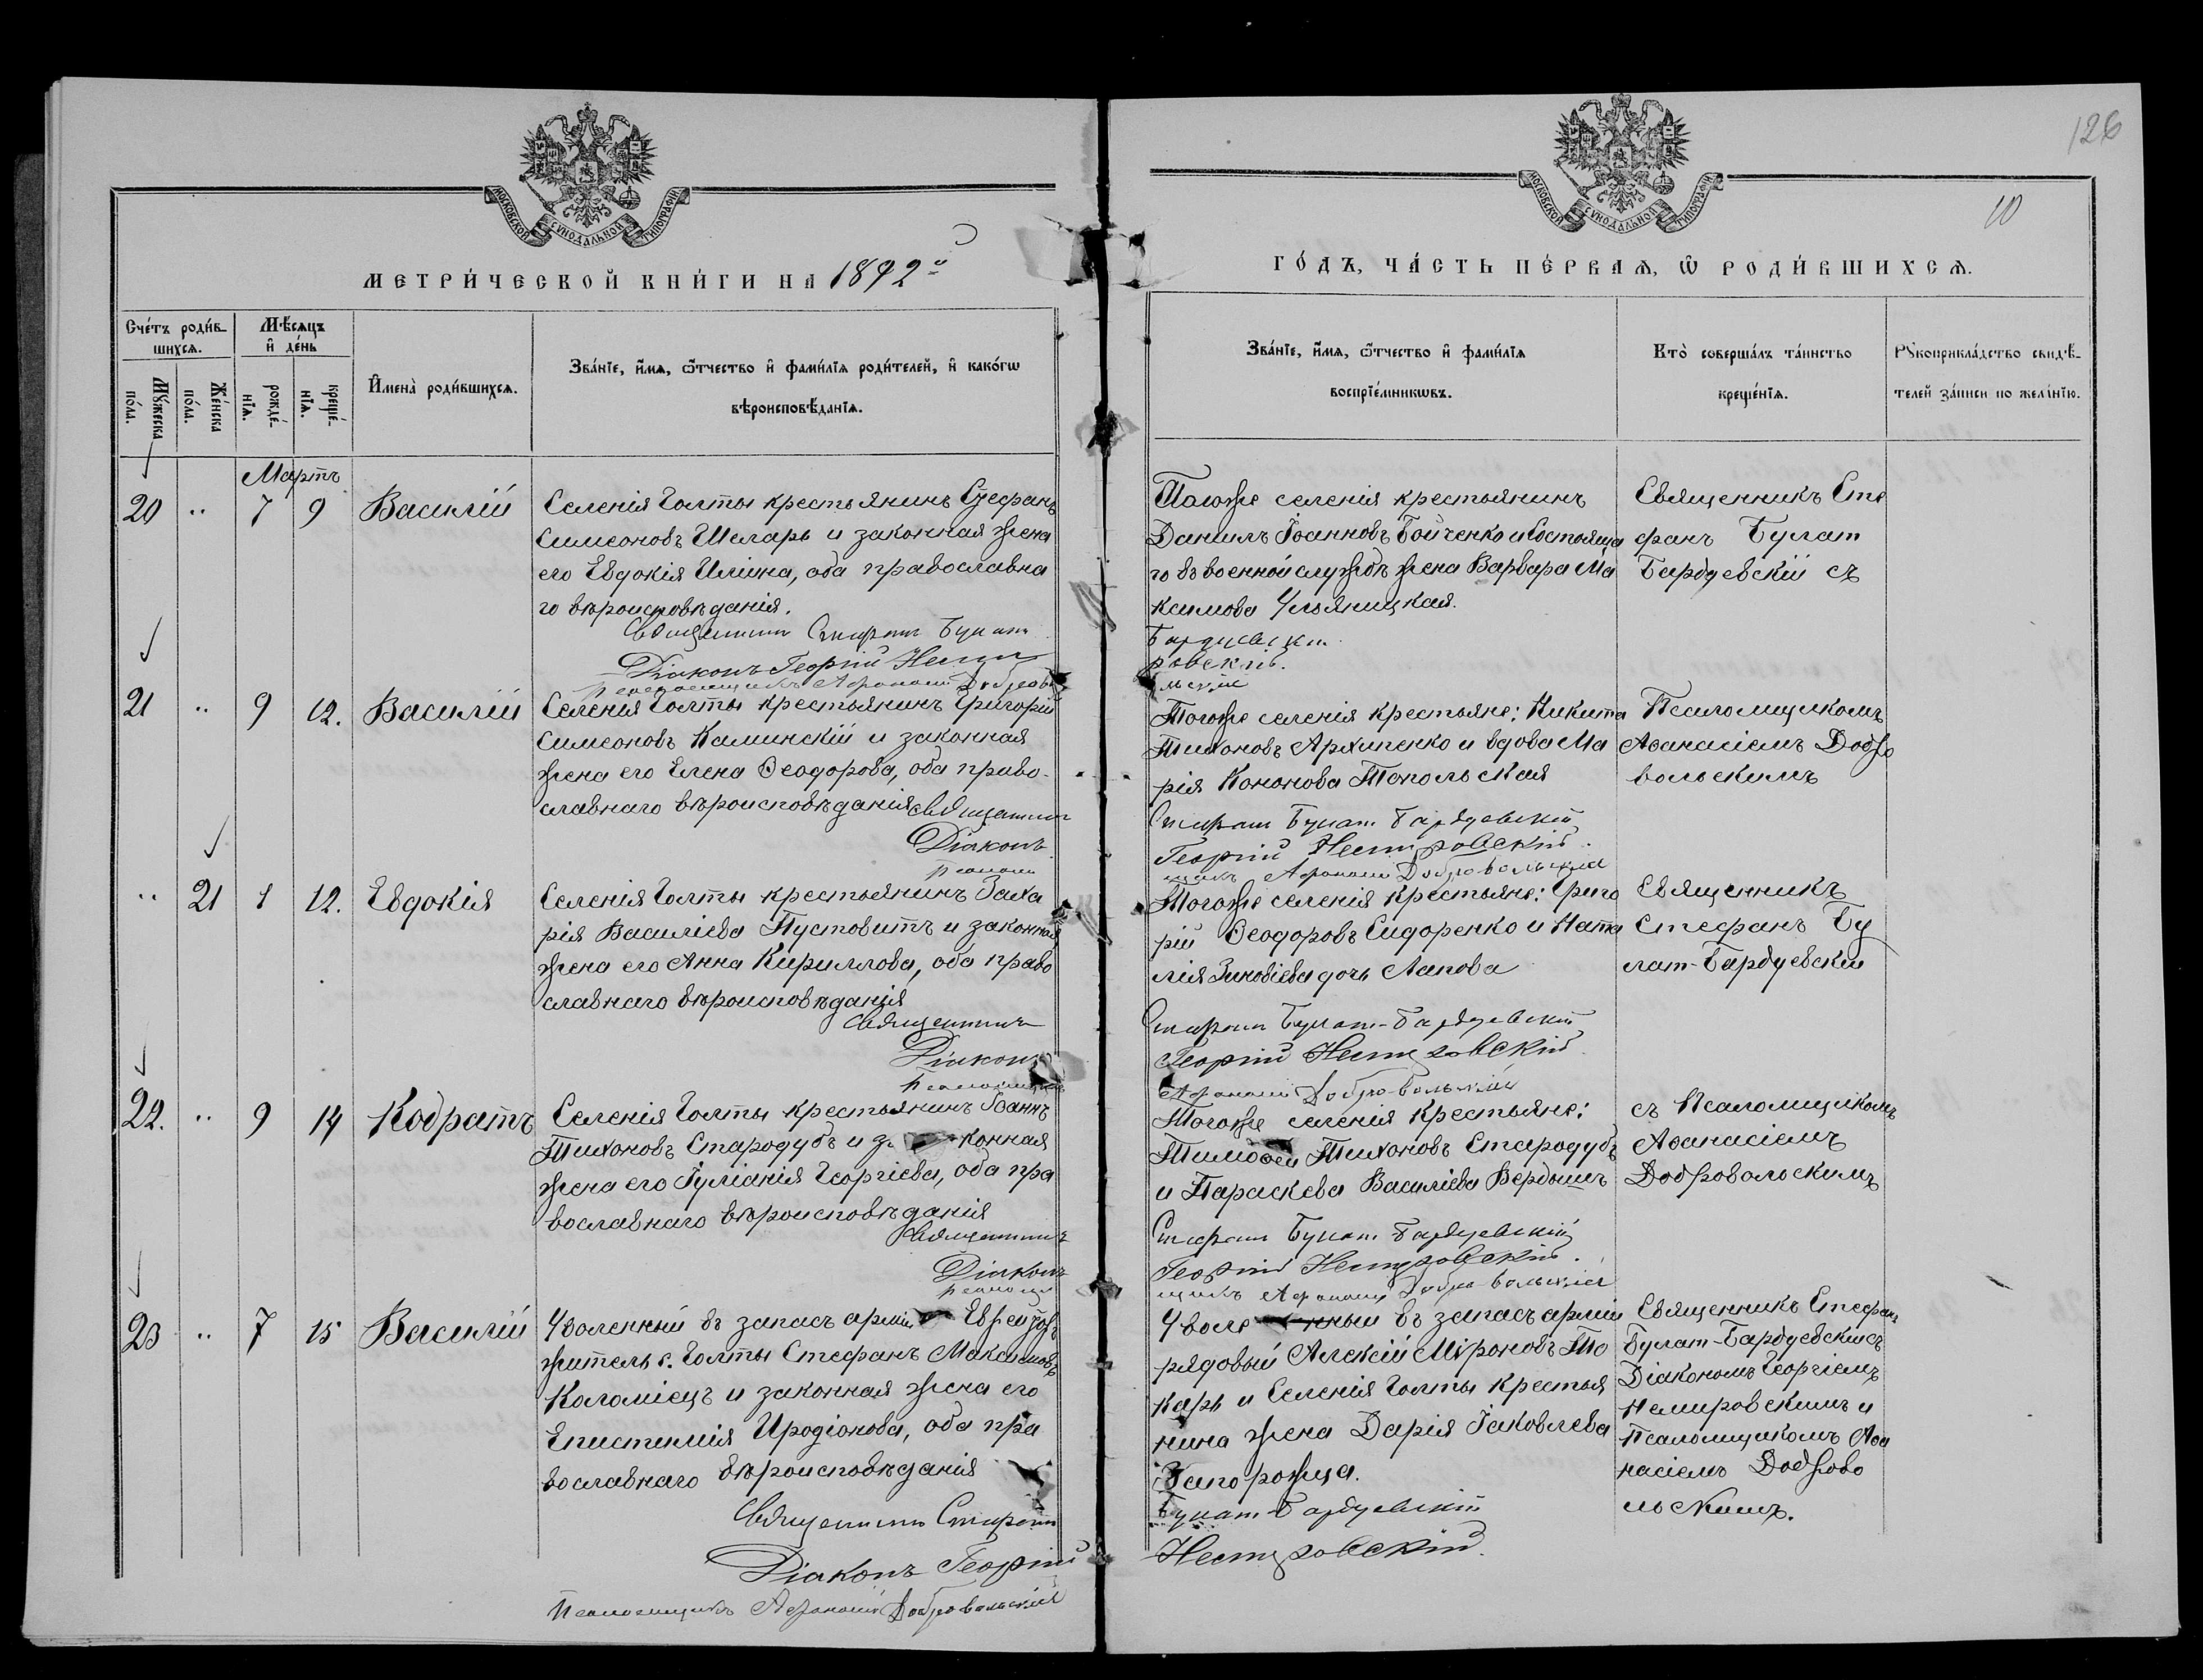 126
10
МОСКОВСКОЙ СѴНОДАЛЬНОЙ ТИПОГРАФІИ
МОСКОВСКОЙ СѴНОДАЛЬНОЙ ТИПОГРАФІИ
МЕТРИ́ЧЕСКОЙ КНИ́ГИ НА 1892й
ГО́ДЪ, ЧА́СТЬ ПЕ́РВАѦ, Ѡ РОДИ́ВШИХСѦ.
Сче́тъ роди́в-
шихсѧ.
Мꙋ́жеска
по́ла.
Же́нска
по́ла.
Мѣ́сѧцъ
и де́нь
рожде́-
нїѧ.
креще́-
нїѧ.
И҆мена̀ роди́вшихсѧ.
Зва́нїе, и҆́мѧ, ѻ҆́тчество и҆ фами́лїѧ роди́телей, и҆ како́гѡ
вѣроисповѣ́данїѧ.
Зва́нїе, и҆́мѧ, ѻ҆́тчество и҆ фами́лїѧ
воспрїе́мникѡвъ.
Кто̀ соверша́лъ та́инство
креще́нїѧ.
Рꙋкоприкла́дство свидѣ́-
телей за́писи по жела́нїю.
Мартъ
20 " 7 9 Василій
Селенія Голты крестьянинъ Стефанъ
Симеоновъ Шеларь и законная жена
его Евдокія Иліина, оба православна
го вѣроисповѣданія.
Священникъ Стефанъ Булатъ
Діаконъ Георгій
Псаломщикъ Афанасій Доброво
Тогоже селенія крестьянинъ
Даніилъ Іоанновъ Бойченко и состояща
го въ военной службѣ жена Варвара Ма
ксимова Ульяницкая.
Бардуевскій
ровскій.
льскій
Священникъ Сте
фанъ Булат
Бардуевскій съ
21 " 9 12. Василій
Селенія Голты крестьянинъ Григорій
Симеоновъ Каминскій и законная
жена его Елена Ѳеодорова, оба право-
славнаго вѣроисповѣданія Священникъ
Діаконъ
Псалом
Тогоже селенія крестьяне: Никита
Тихоновъ Архипенко и вдова Ма
рія Кононова Топольская
Стефанъ Булатъ Бардуевскій
Георгій
щикъ Афанасій Добровольскій
Псаломщикомъ
Аѳанасіемъ Добро
вольскимъ
" 21 1 12. Евдокія
Селенія Голты крестьянинъ Заха
рія Василіева Пустовитъ и законная
жена его Анна Кириллова, оба право
славнаго вѣроисповѣданія
Священникъ
Діаконъ
Псаломщикъ
Тогоже селенія крестьяне: Григо
рій Ѳеодоровъ Сидоренко и Ната
лія Зиновіева дочь Лапова
Стефанъ Булатъ-Бардуевскій
Георгій
Афанасій Добровольскій
Священникъ
Стефанъ Бу
лат-Бардуевскій
22. " 9 14 Кодратъ
Селенія Голты крестьянинъ Іоаннъ
Тихоновъ Стародубъ и законная
жена его Іуліанія Георгіева, оба пра
вославнаго вѣроисповѣданія
Священникъ
Діаконъ
Псалом
Тогоже селенія крестьяне:
Тимоѳей Тихоновъ Стародубъ
и Параскева Василіева Вердышъ
Стефанъ Булатъ Бардуевскій
Георгій
щикъ Афанасій Добровольскій
съ Псаломщикомъ
Аѳанасіемъ
Добровольскимъ
23 " 7 15 Василій
Уволенный въ запасъ арміи Ефрейторъ
житель с. Голты Стефанъ Максимовъ
Коломіецъ и законная жена его
Епистимія Иродіонова, оба пра
вославнаго вѣроисповѣданія
Священникъ Стефанъ
Діаконъ Георгій
Псаломщикъ Афанасій Добровольскій
Уволенный въ запасъ арміи
рядовый Алексій Міроновъ То
карь и Селенія Голты крестья
нина жена Дарія Іаковлева
Запорожца.
Булатъ-Бардуевскій
Священникъ Стефанъ
Булат-Бардуевскій съ
Діакономъ Георгіемъ
Немировскимъ и
Псаломщикомъ Аѳа
насіемъ Доброво
льскимъ.